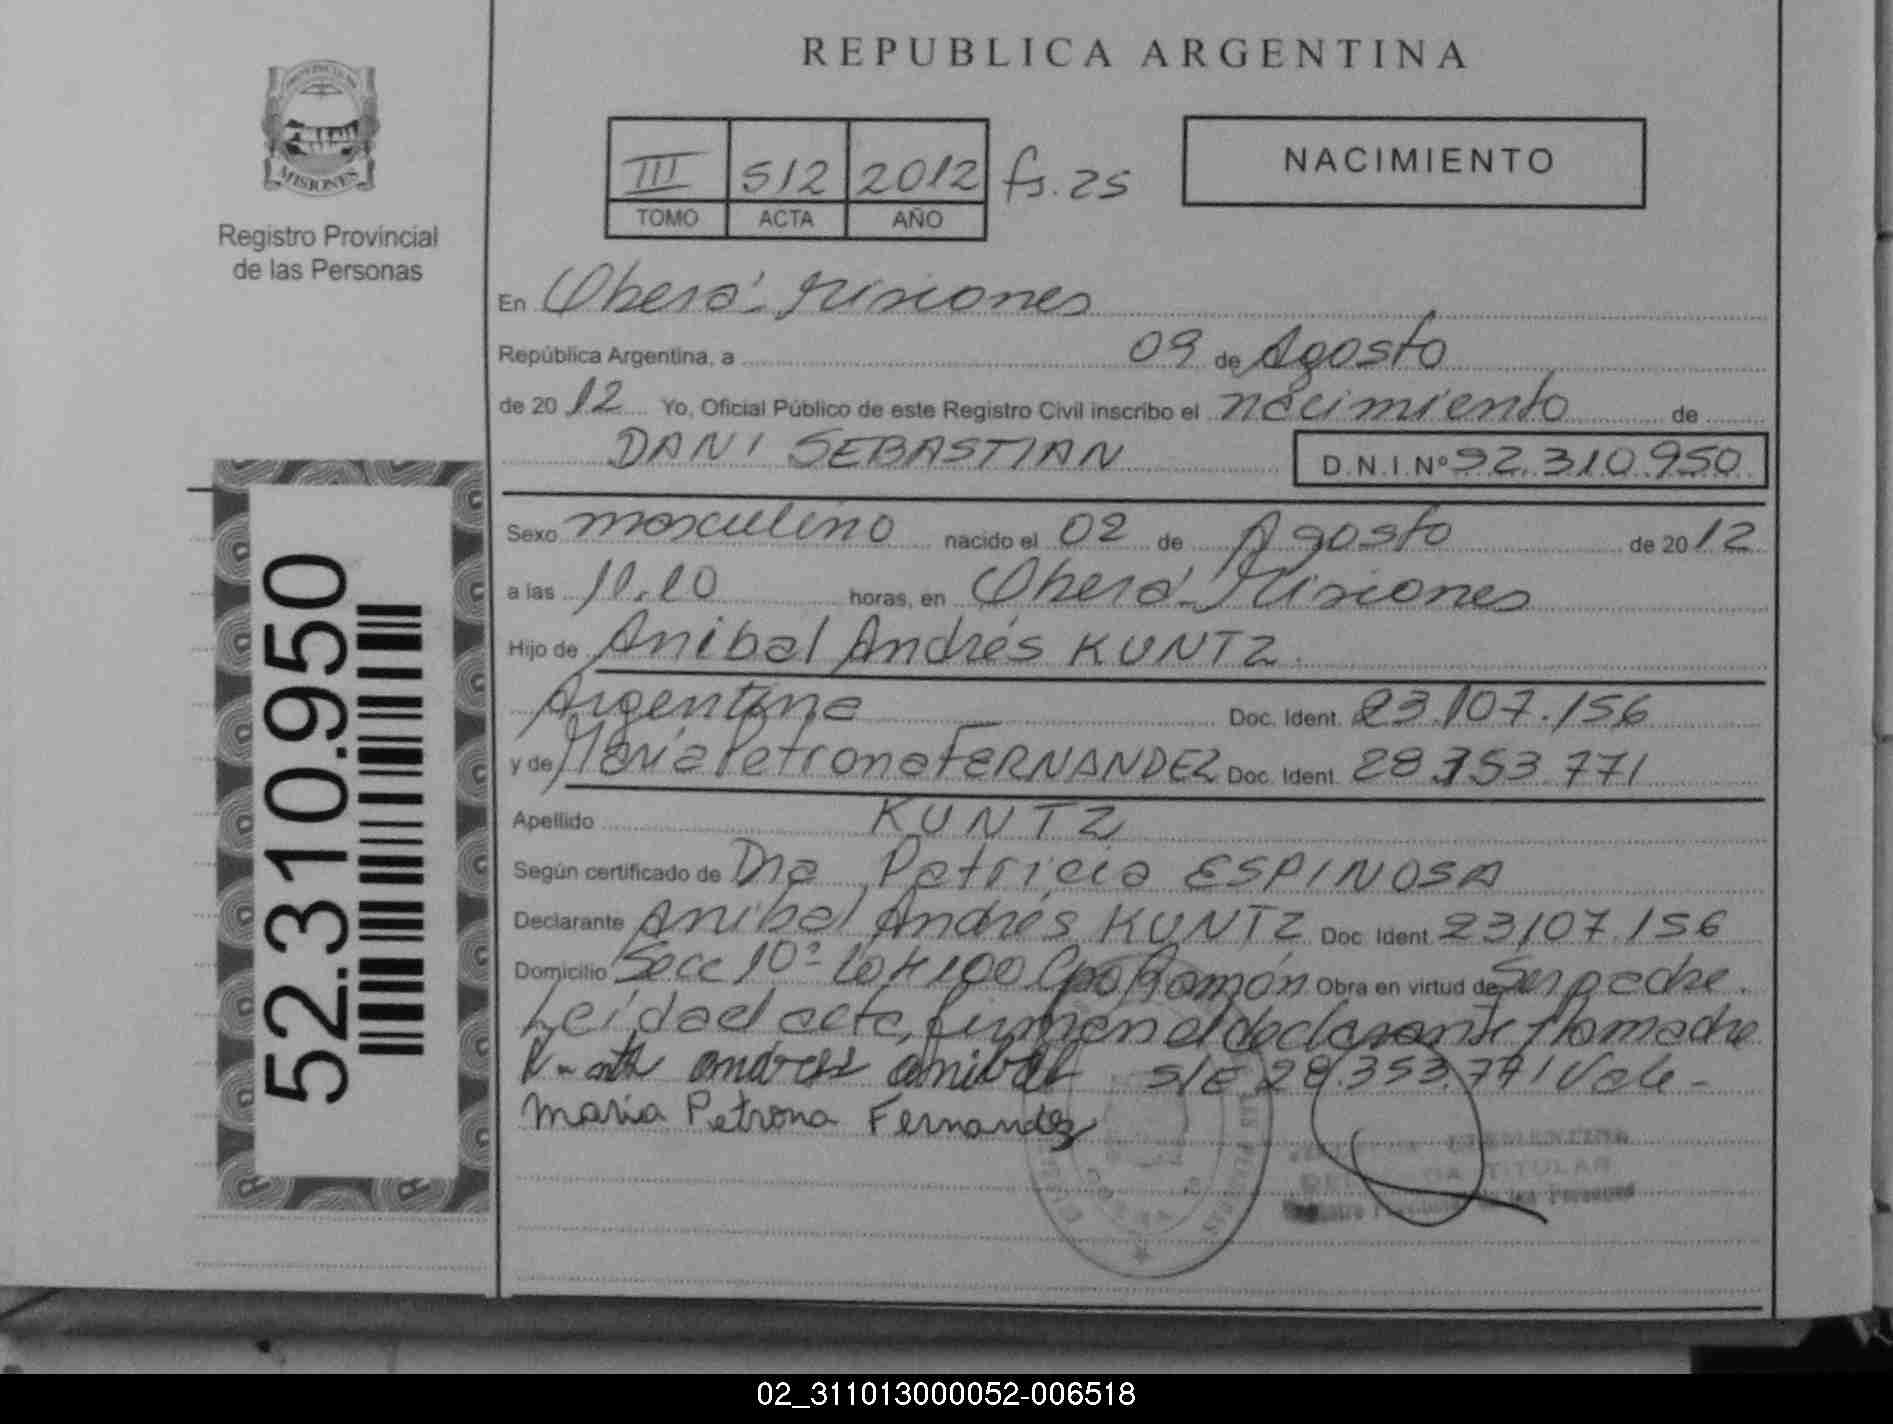 REPUBLICA ARGENTINA
PROVINCIA DE
MISIONES
Registro Provincial
de las Personas
III 512 2012 fs. 25
TOMO ACTA AÑO
NACIMIENTO
En Oberá - Misiones
República Argentina, a 09 de Agosto
de 2012 Yo, Oficial Público de este Registro Civil inscribo el nacimiento de
DANI SEBASTIAN D.N.I. Nº 52.310.950
Sexo masculino nacido el 02 de Agosto de 2012
a las 11.10 horas, en Oberá - Misiones
Hijo de Anibal Andrés KUNTZ
Argentina — Doc. Ident. 23.107.156
y de María Petrona FERNANDEZ Doc. Ident. 28.353.771
Apellido KUNTZ
Según certificado de Dra Patricia ESPINOSA
Declarante Anibal Andrés KUNTZ Doc. Ident. 23.107.156
Domicilio Secc 10ª Lote 100 Cpo Ramón Obra en virtud de Ser padre.
Leída el acta, firman el declarante y la madre
andres anibal S/E 28.353.771 Vale -
Maria Petrona Fernandez
TITULAR
de las Personas
52.310.950
02_311013000052-006518